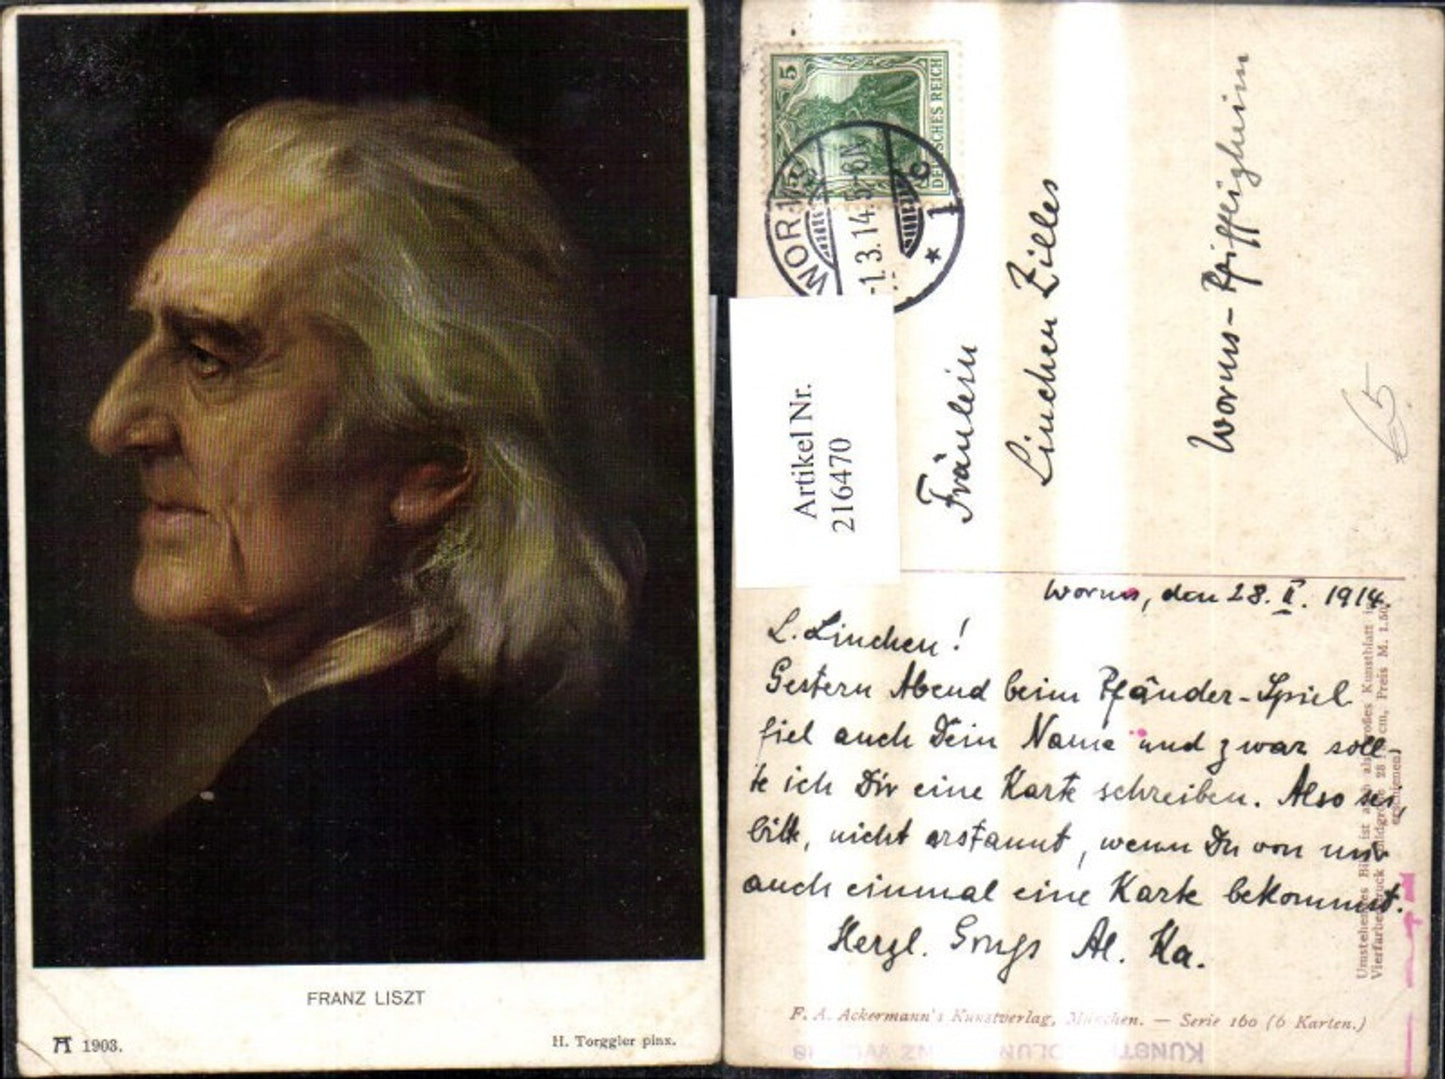 FRANZ LISZT
1903.
H. Torggler pinx.
5
DEUTSCHES REICH
WORMS
-1.3.14.
1
c
Artikel Nr.
216470
Fräulein
Linchen Zilles
Worms-Pfiffligheim
65
Worms, den 28. II. 1914
L. Linchen!
Gestern Abend beim Pfänder-Spiel
fiel auch Dein Name und zwar soll-
te ich Dir eine Karte schreiben. Also sei,
bitte, nicht erstaunt, wenn Du von mir
auch einmal eine Karte bekommst.
Herzl. Al. Ka.
Umstehendes Bild ist auch als großes Kunstblatt in
Vierfarbendruck cm, Preis M. 1.50
erschienen.
F. A. Ackermann's Kunstverlag, München. — Serie 160 (6 Karten.)